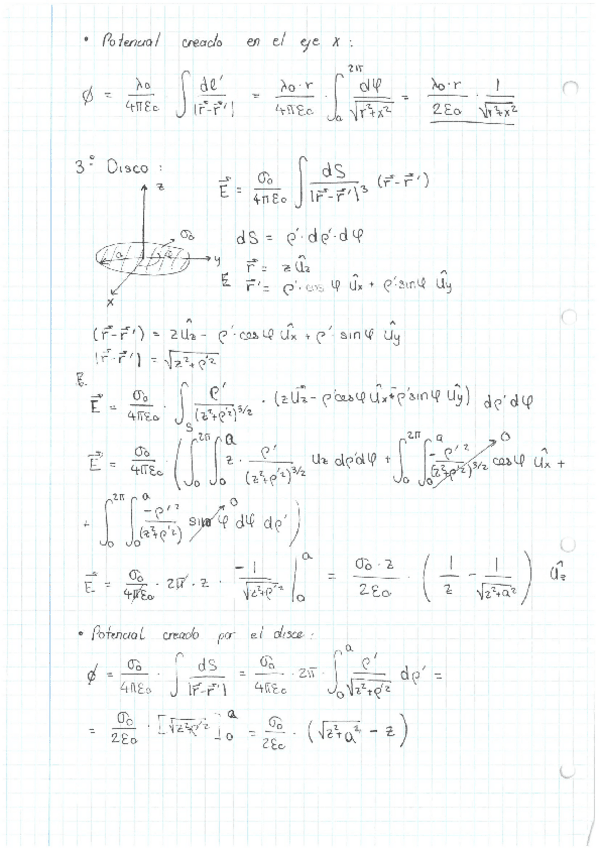 • Potencial creado en el eje x :
ϕ = λo/4πεo ∫ dl'/|r⃗-r⃗'| = λo·r/4πεo · ∫₀^2π dφ/√(r²+x²) = λo·r/2εo · 1/√(r²+x²)
3º Disco :
E⃗ = σo/4πεo ∫ dS/|r⃗-r⃗'|³ (r⃗-r⃗')
z
σo
a
y
x
dS = ρ'·dρ'·dφ
r⃗ = z ûz
r⃗' = ρ'·cos φ ûx + ρ'·sin φ ûy
(r⃗-r⃗') = z ûz - ρ'·cos φ ûx + ρ' sin φ ûy
|r⃗-r⃗'| = √(z²+ρ'²)
E⃗ = σo/4πεo · ∫_S ρ'/(z²+ρ'²)^3/2 · (z ûz - ρ' cos φ ûx - ρ' sin φ ûy) dρ' dφ
E⃗ = σo/4πεo · ( ∫₀^2π ∫₀^a z · ρ'/(z²+ρ'²)^3/2 uz dρ' dφ + ∫₀^2π ∫₀^a -ρ'²/(z²+ρ'²)^3/2 cos φ ûx + 0
+ ∫₀^2π ∫₀^a -ρ'²/(z²+ρ'²) sin φ dφ dρ' ) 0
E⃗ = σo/4πεo · 2π · z · -1/√(z²+ρ'²) |₀^a = σo·z/2εo · ( 1/z - 1/√(z²+a²) ) ûz
• Potencial creado por el disco :
ϕ = σo/4πεo · ∫ dS/|r⃗-r⃗'| = σo/4πεo · 2π · ∫₀^a ρ'/√(z²+ρ'²) dρ' =
= σo/2εo · [√(z²+ρ'²)]₀^a = σo/2εo · (√(z²+a²) - z)